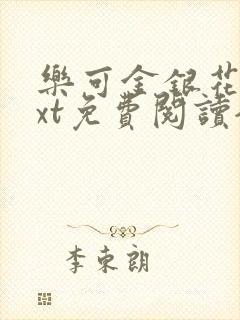 樂可金銀花
xt免費閱讀
李東朗